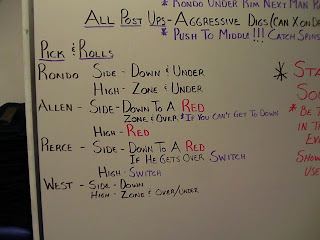 * RONDO UNDER KIM NEXT MAN
ALL POST UPS - AGGRESSIVE DIGS (CAN X ON D
* PUSH TO MIDDLE!!! CATCH SPINS
PICK & ROLLS
RONDO SIDE - DOWN & UNDER
HIGH - ZONE & UNDER
ALLEN - SIDE - DOWN TO A RED
ZONE & OVER * IF YOU CAN'T GET TO DOWN
HIGH - RED
PIERCE - SIDE - DOWN TO A RED
IF HE GETS OVER SWITCH
HIGH - SWITCH
WEST - SIDE - DOWN
HIGH - ZONE & OVER/UNDER
* STA
SO
* BE T
IN T
EVE
SHOW
USE